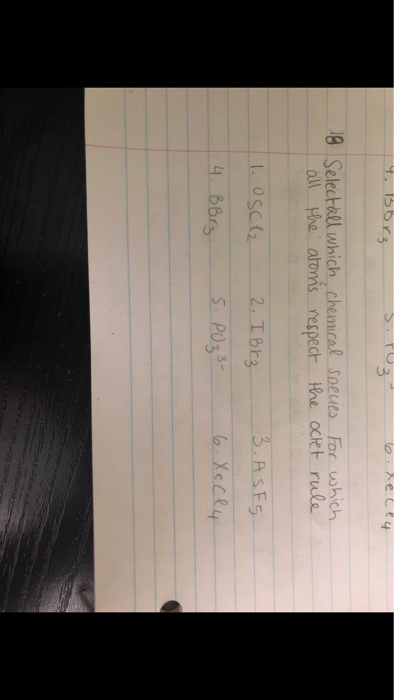 4. BBr3 5. PO3 3- 6. XeCl4
18 Select all which chemical species For which
all the atoms respect the octet rule
1. OSCl2 2. IBr3 3. AsF5
4. BBr3 5. PO3 3- 6. XeCl4